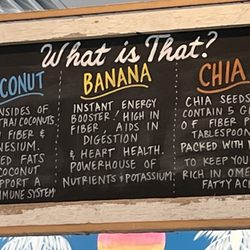 What is That?
COCONUT
INSIDES OF
THAI COCONUTS.
FIBER &
MAGNESIUM.
FATS
COCONUT
SUPPORT A
IMMUNE SYSTEM
BANANA
INSTANT ENERGY
BOOSTER! HIGH IN
FIBER, AIDS IN
DIGESTION
& HEART HEALTH.
POWERHOUSE OF
NUTRIENTS & POTASSIUM.
CHIA
CHIA SEEDS
CONTAIN 5 G
OF FIBER P
TABLESPOON
PACKED WITH
TO KEEP YOU
RICH IN OME
FATTY AC